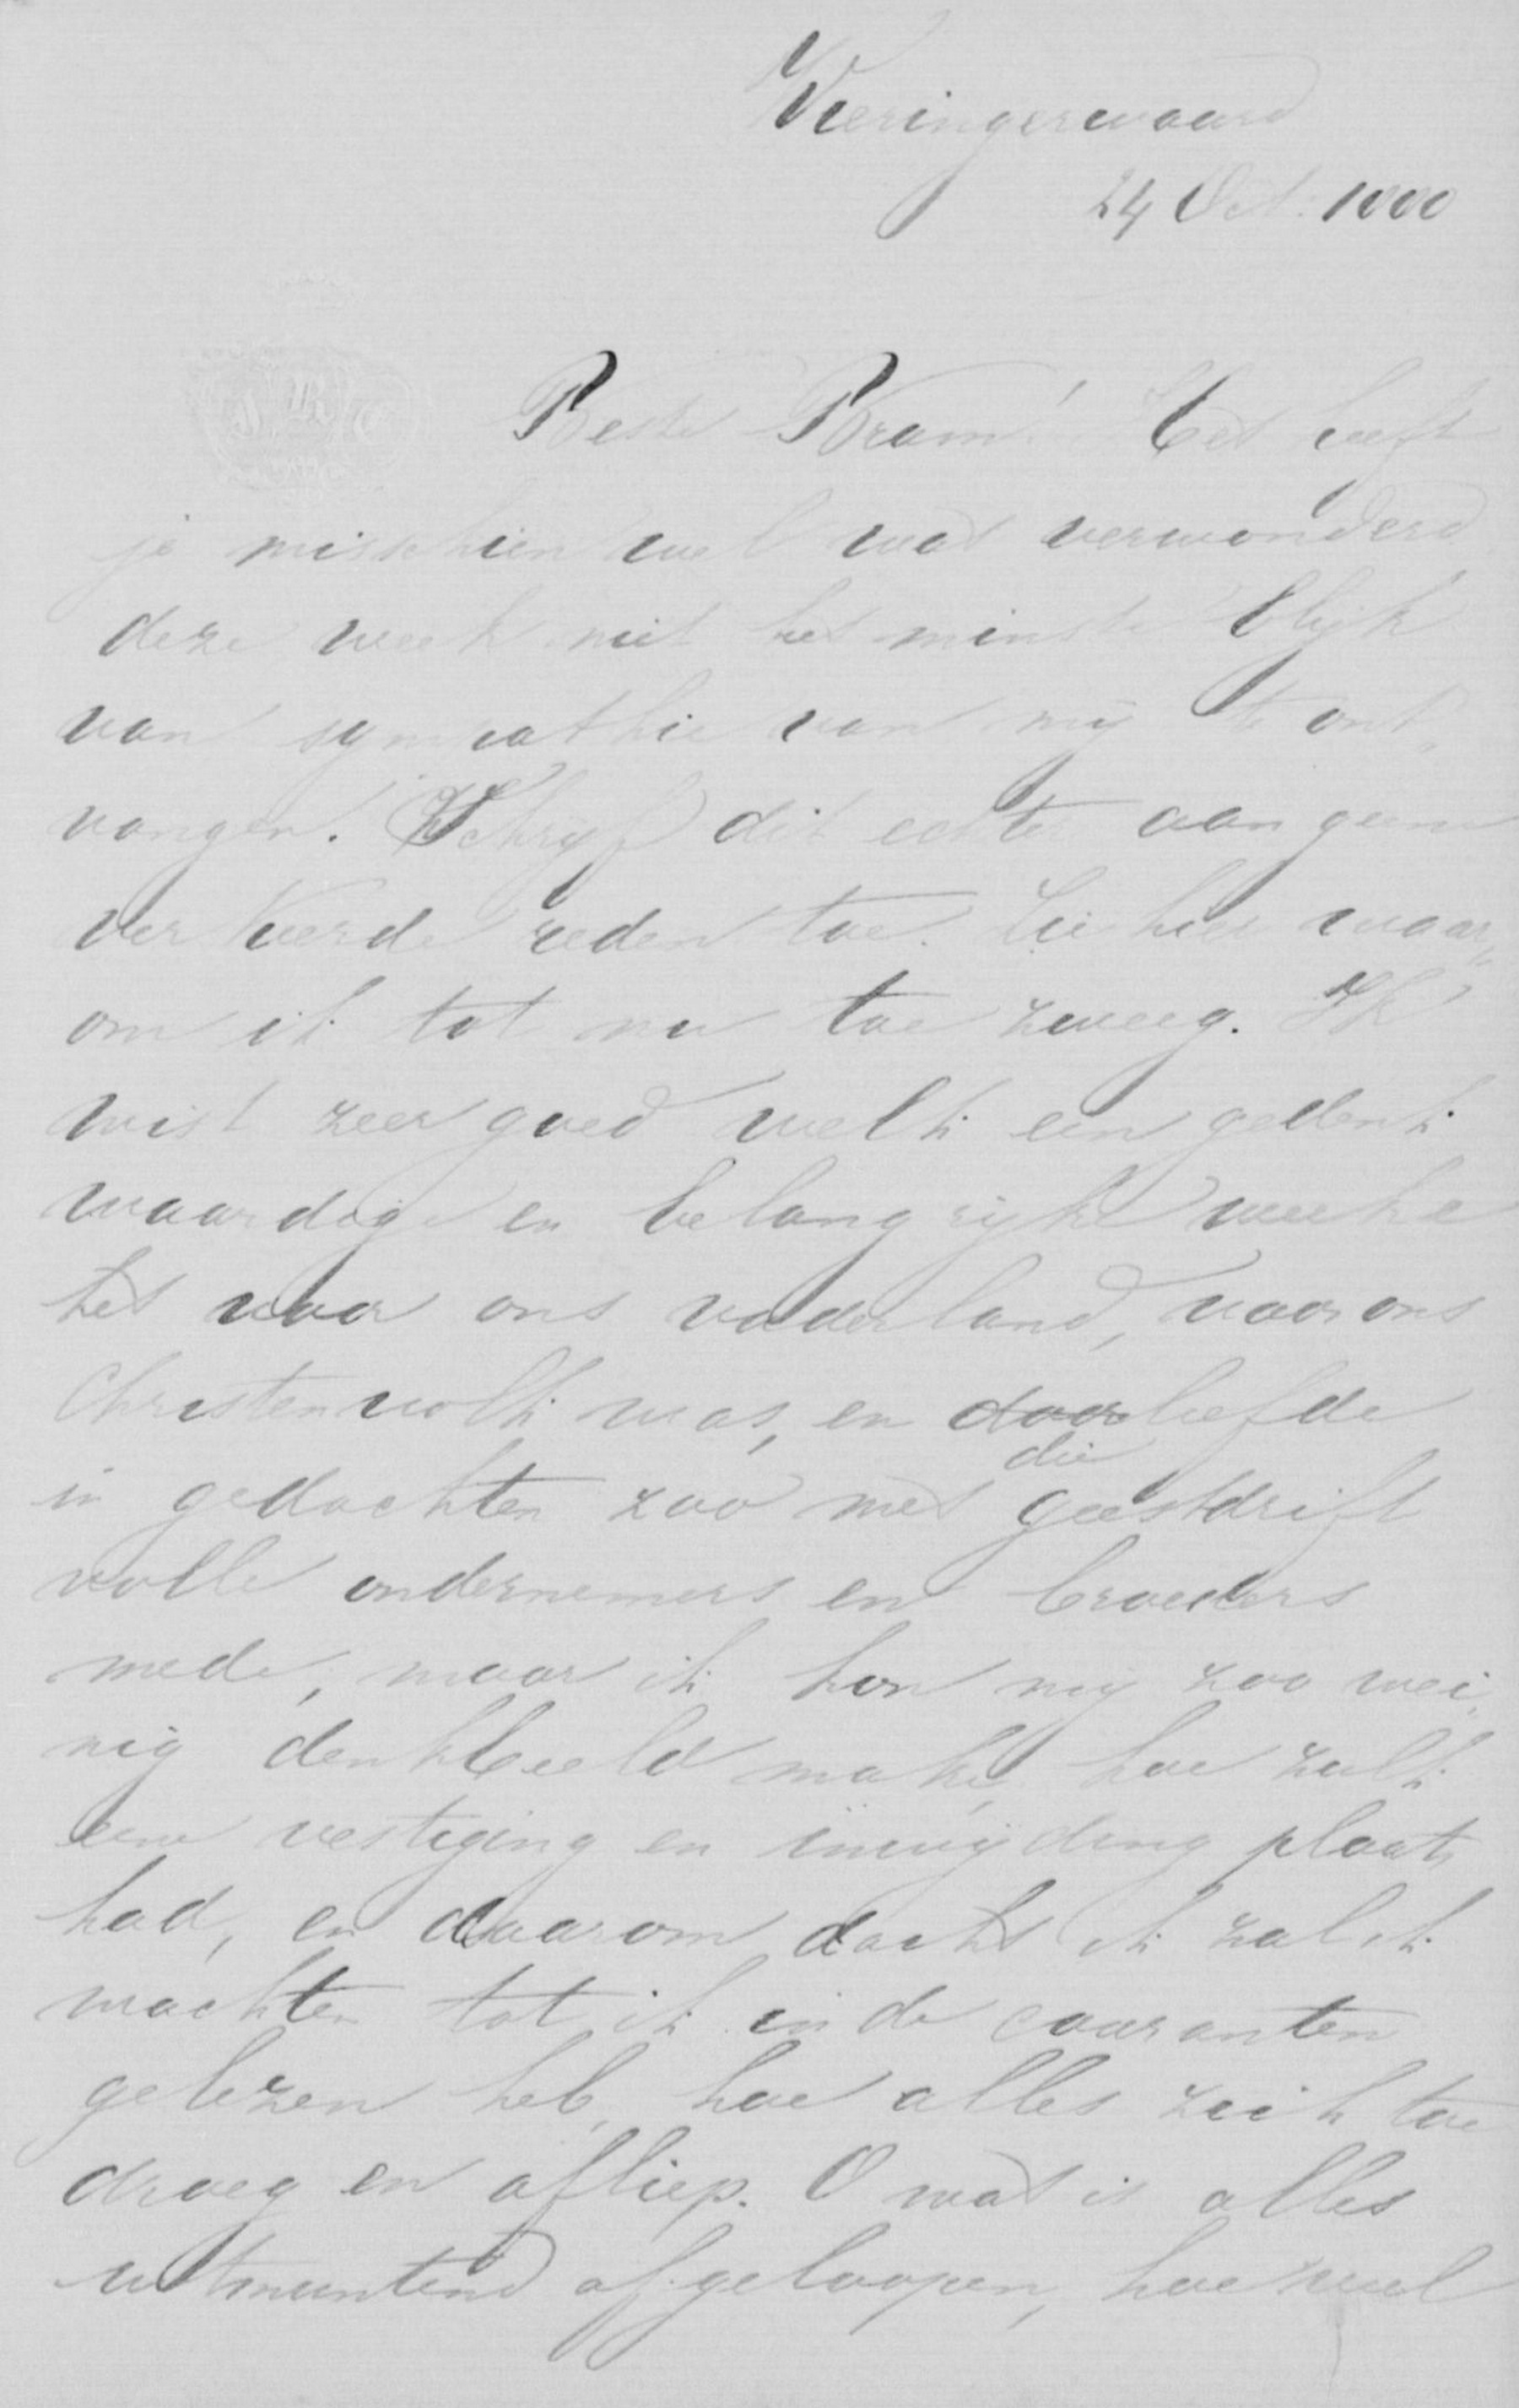 Wieringerwaard
24 Oct. 1880
Beste Bram! Het heeft
je misschien wel wat verwonderd
deze week niet het minste blijk
van sympathie van mij te ont„
vangen. Schrijf dit echter aan geene
verkeerde reden toe. Zie hier waar„
om ik tot nu toe zweeg. Ik
wist zeer goed welk een gedenk
waardige en belangrijke weeke
het voor ons vaderland, voor ons
Christenvolk was, en door leefde
in gedachten zoo met die geestdrift
volle ondernemers en broeders
mede, maar ik kon mij zoo wei„
nig denkbeeld maken, hoe zulk
eene vestiging en inwijding plaats
had, en daarom dacht ik zal ik
wachten tot ik in de couranten
gelezen heb, hoe alles zich toe
droeg en afliep. O wat is alles
uitmuntend afgeloopen, hoe veel